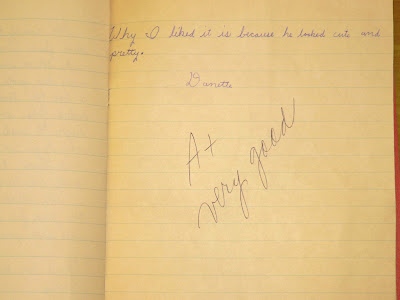 Why I liked it is because he looked cute and
pretty.
Danette
A+
very good